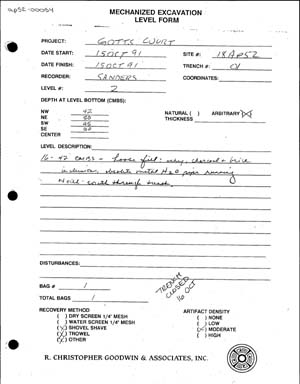 ap52-00054
MECHANIZED EXCAVATION
LEVEL FORM
PROJECT: GOTTS COURT
DATE START: 15 OCT 91 SITE #: 18AP52
DATE FINISH: 15 OCT 91 TRENCH #: 01
RECORDER: SANDERS COORDINATES:
LEVEL #: 2
DEPTH AT LEVEL BOTTOM (CMBS):
NW 42 NATURAL ( ) ARBITRARY (X)
NE 50 THICKNESS
SW 45
SE
CENTER
LEVEL DESCRIPTION:
16 - 42 CMBS - Loose fill: charcoal + brick
inclusions, obsolete metal H2O pipe running
N-S through trench.
DISTURBANCES:
BAG # 1
TOTAL BAGS 1
TRENCH
CLOSED
16 OCT
RECOVERY METHOD ARTIFACT DENSITY
( ) DRY SCREEN 1/4" MESH ( ) NONE
( ) WATER SCREEN 1/4" MESH ( ) LOW
(X) SHOVEL SHAVE (X) MODERATE
(X) TROWEL ( ) HIGH
(X) OTHER
R. CHRISTOPHER GOODWIN & ASSOCIATES, INC.